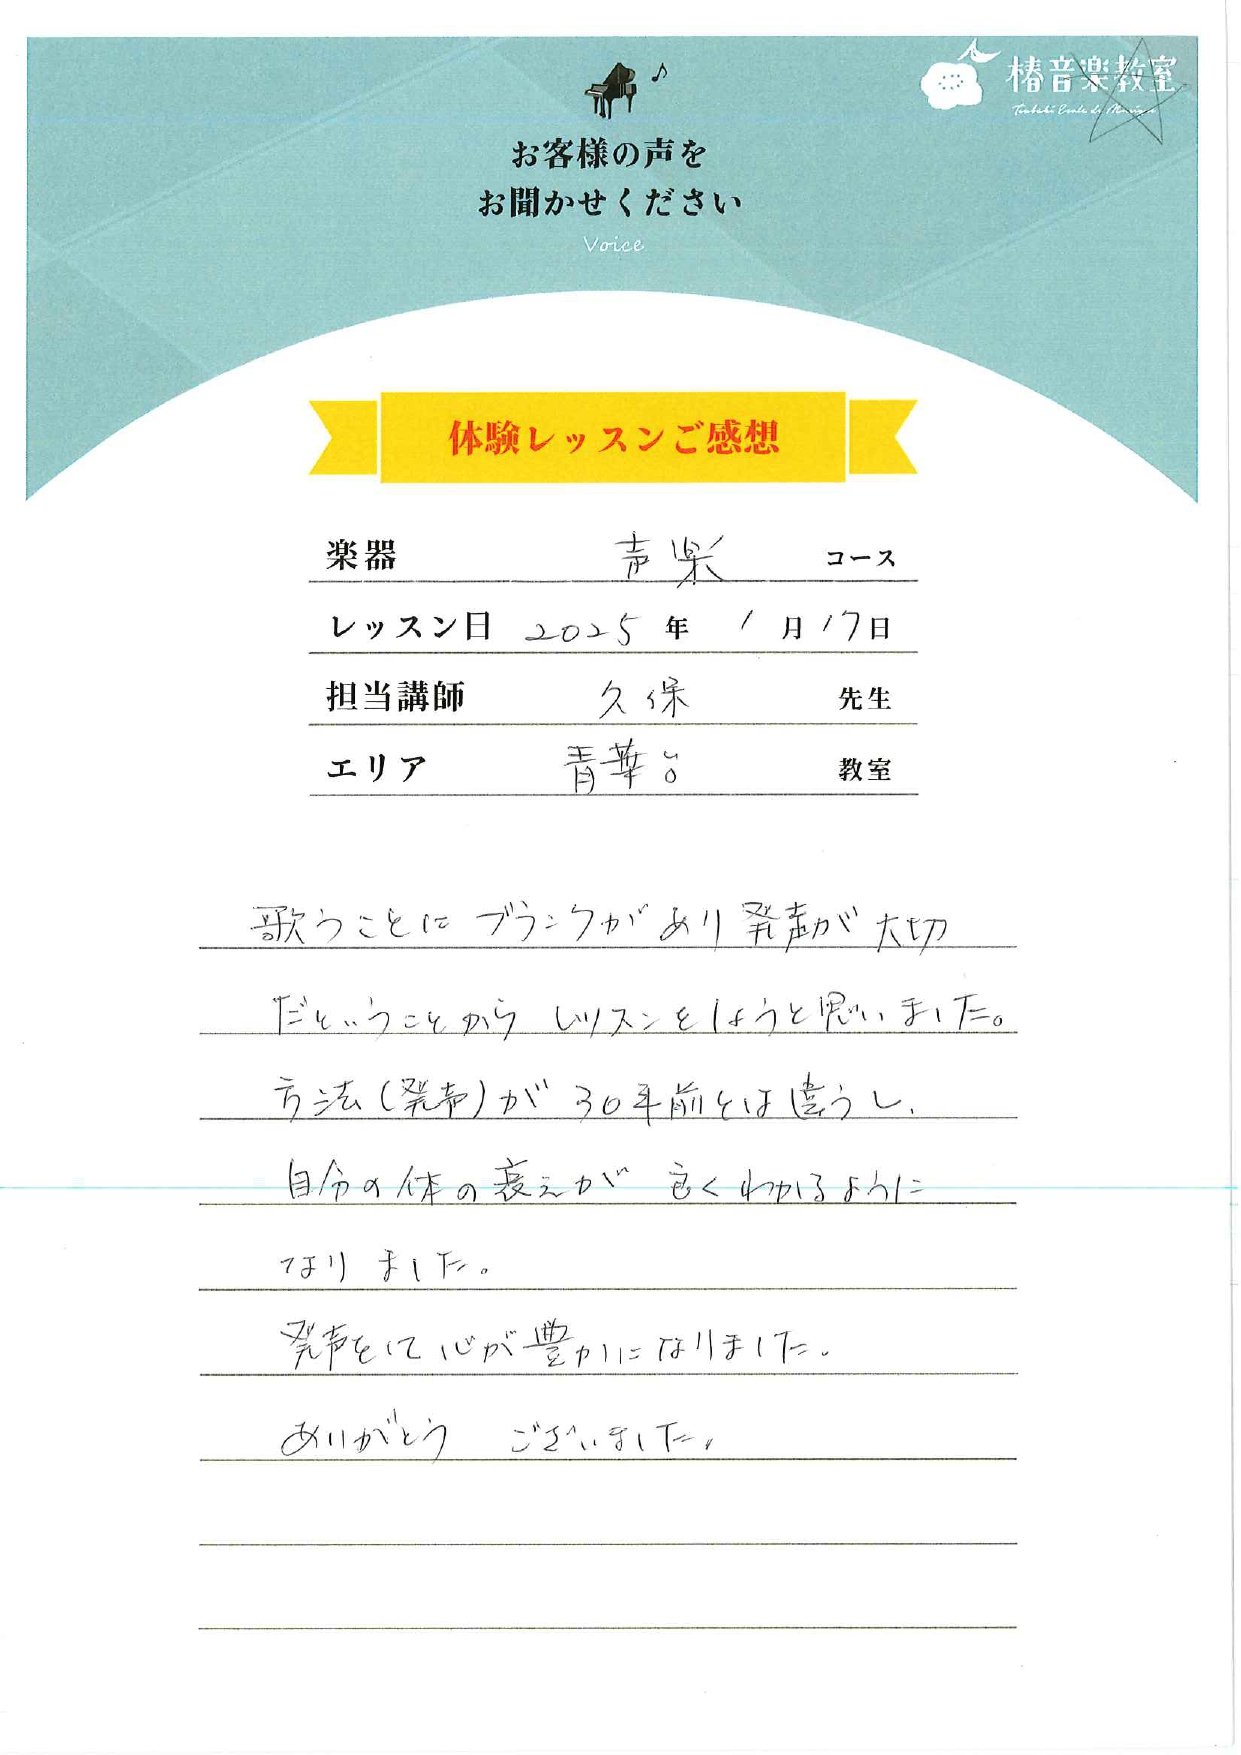 椿音楽教室
Tsubaki Ecole de Musique
お客様の声を
お聞かせください
Voice
体験レッスンご感想
楽器 声楽 コース
レッスン日 2025 年 1 月 17 日
担当講師 久保 先生
エリア 青葉台 教室
歌うことにブランクがあり発声が大切
だということからレッスンをしようと思いました。
方法(発声)が30年前とは違うし、
自分の体の衰えが良くわかるように
なりました。
発声をして心が豊かになりました。
ありがとうございました。